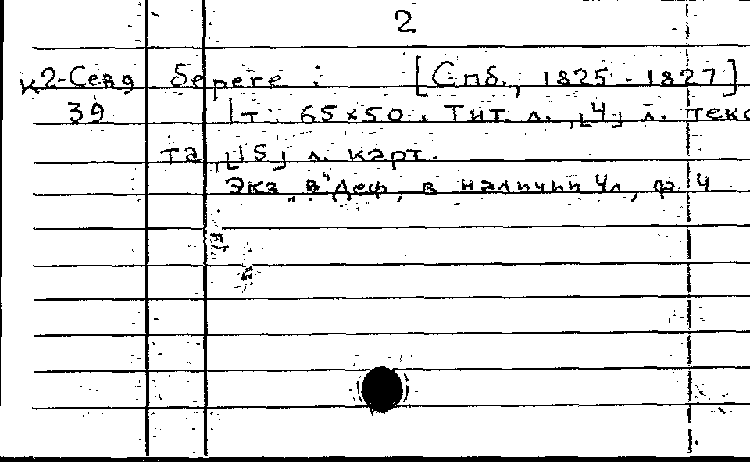 2
К2-Сев9 береге : [Спб., 1825-1827]
39 1т. 65x50. Тит. л., [4] л. текс
та, [15] л. карт.
Экз. "В" деф., в наличии 4л., ф. 4